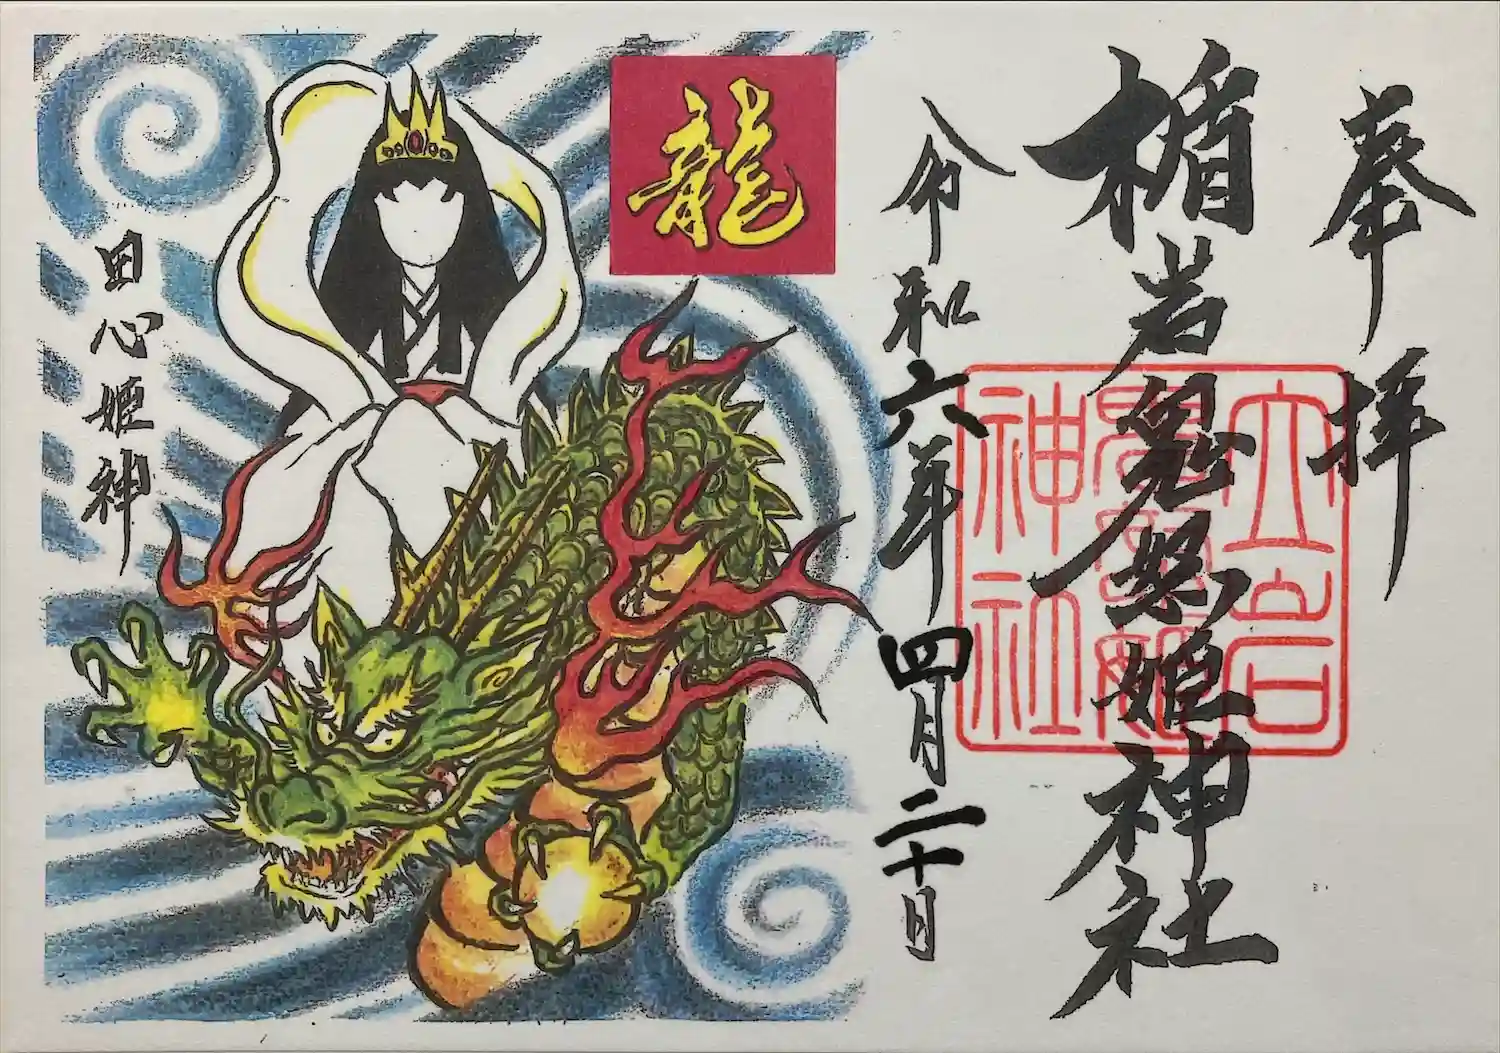 奉拝
楯岩鬼怒姫神社
立岩
鬼怒姫
神社
令和六年四月二十日
龍
田心姫神